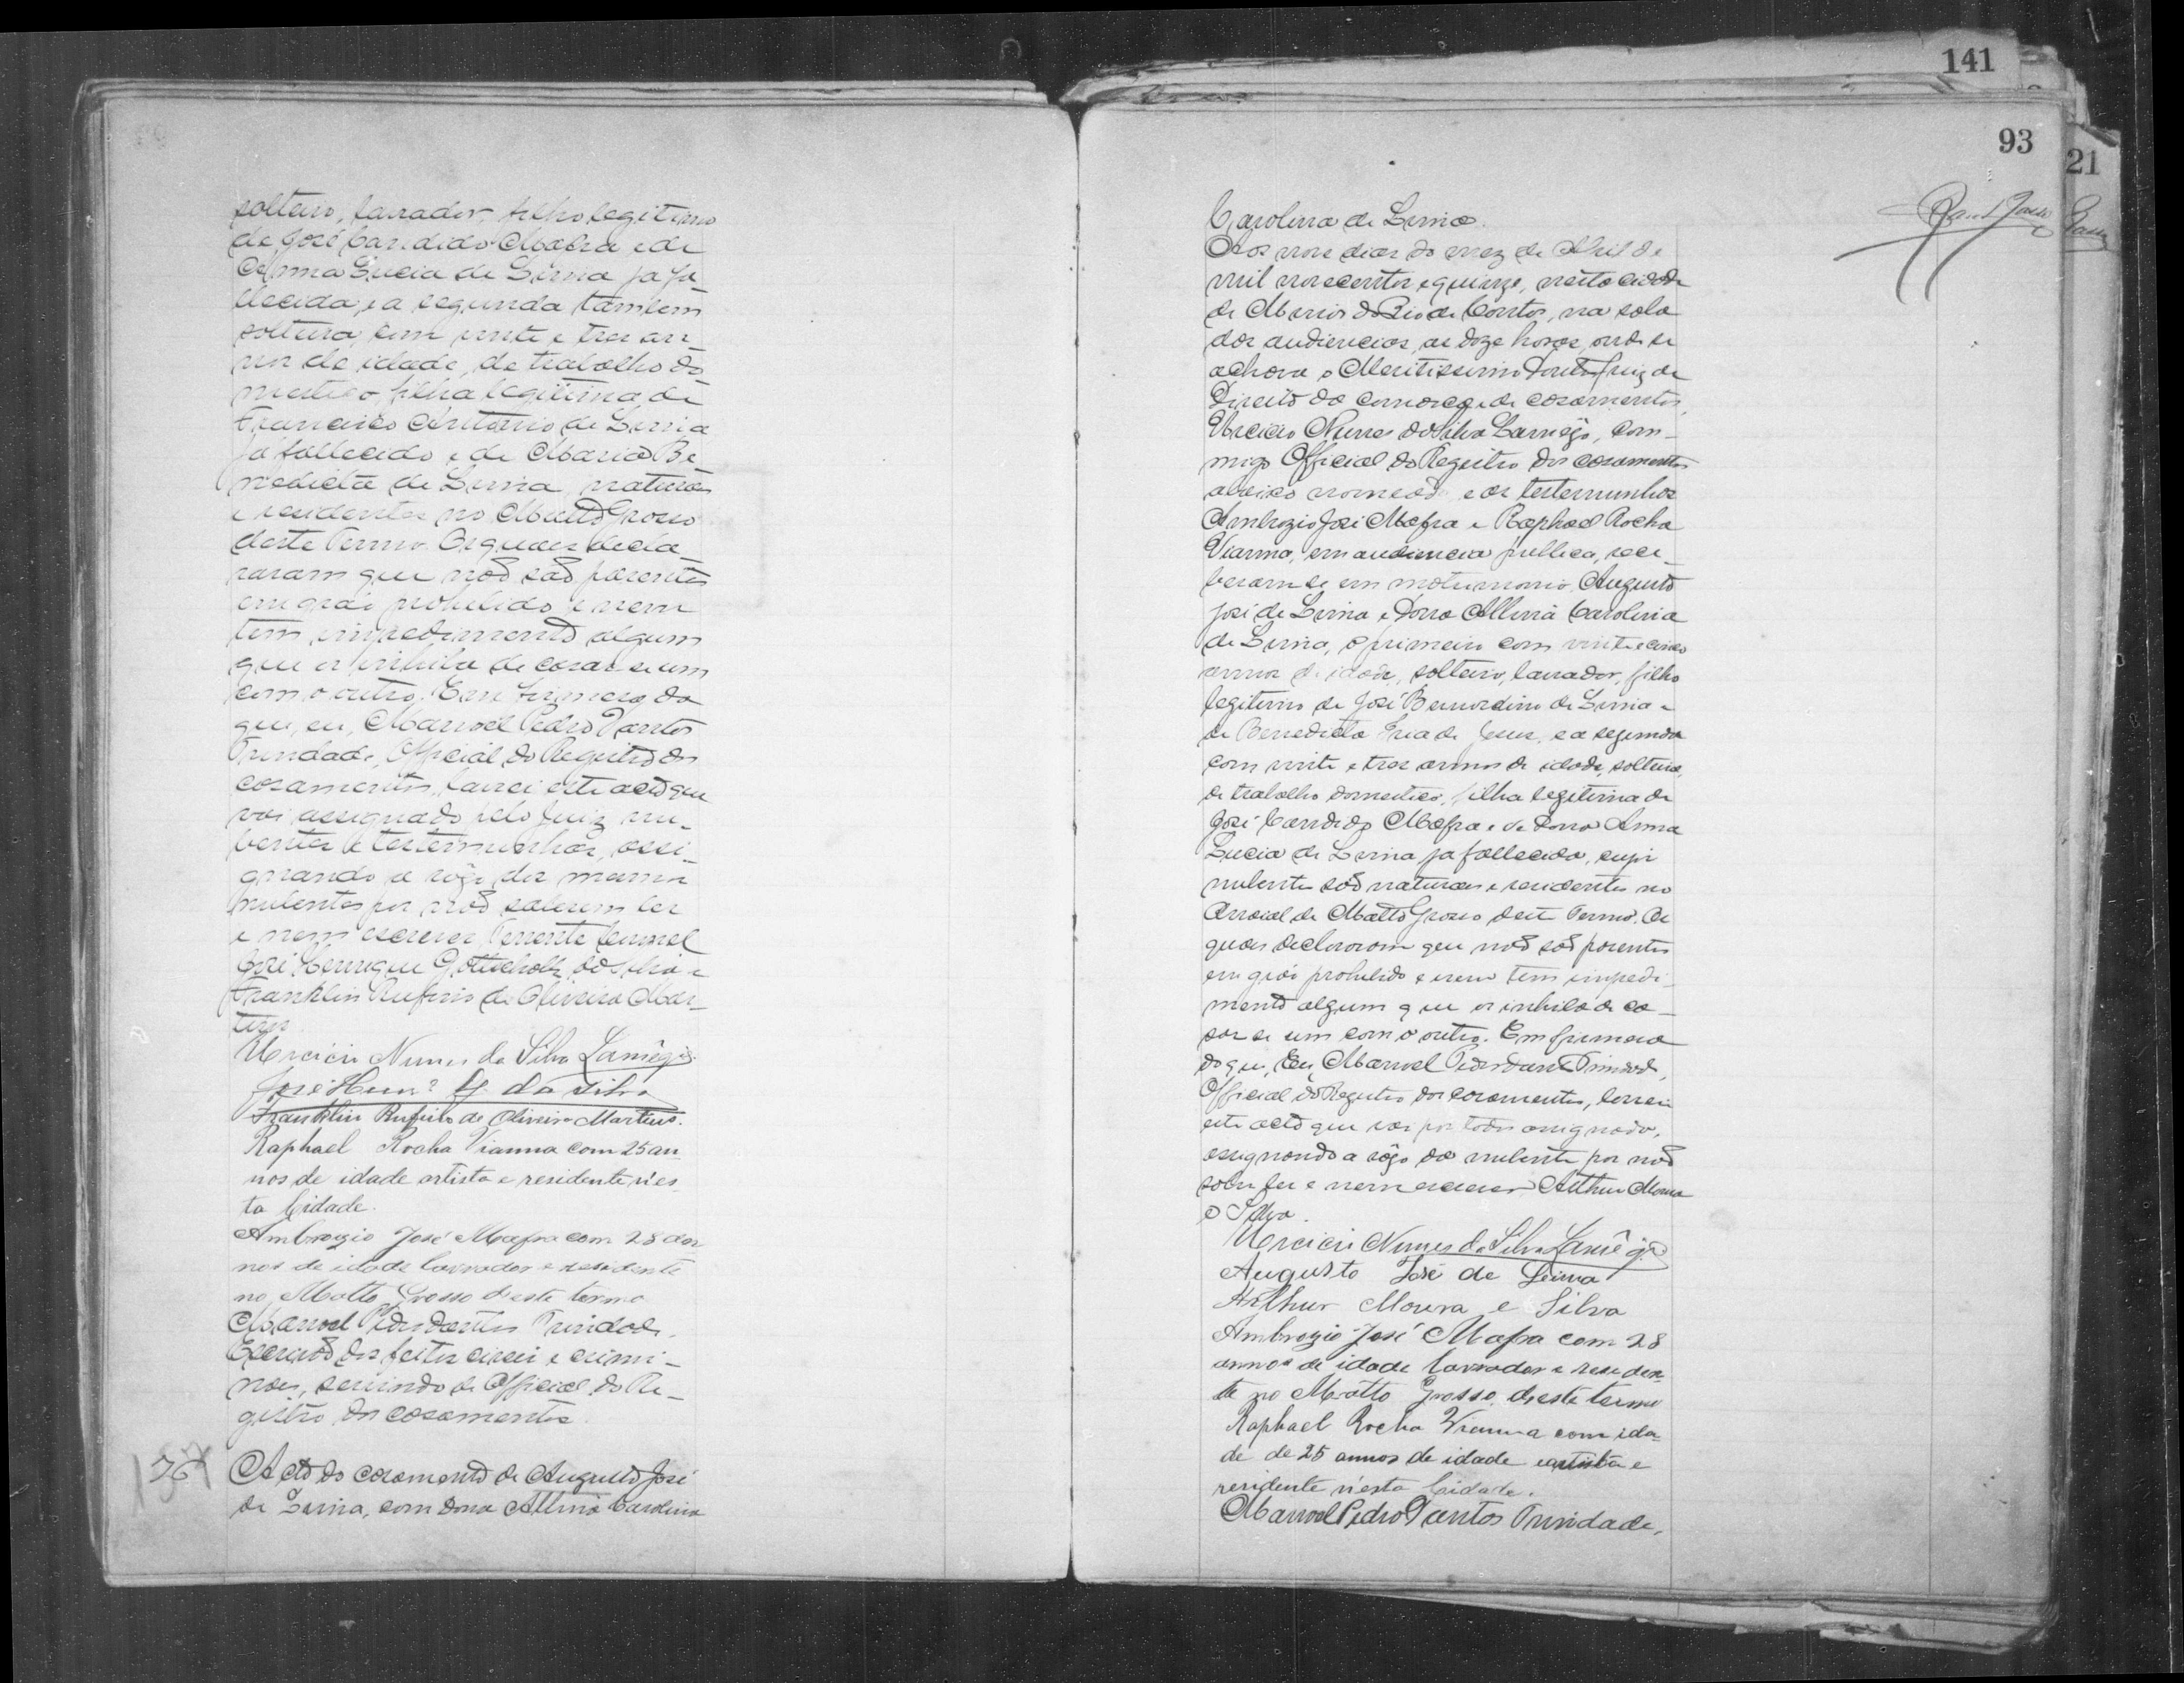 solteiro, lavrador, filho legitimo
de José Candido Mafra e de
Anna Lucia de Lima ja fa-
llecida, e a segunda tambem
solteira, com vinte e tres an-
nos de idade, de trabalho do-
mestico, filha legitima de
Francisco Antonio de Lima
já fallecido e de Maria Be-
nedicta de Lima, naturaes
e residentes no Matto Grosso
deste Termo. Os quaes decla-
raram que não são parentes
em gráo prohibido e nem
tem impedimento algum
que os inhiba de casar se um
com o outro. Em firmesa do
que, eu, Manoel Pedro Dantes
Trindade, Official do Registro dos
casamentos, lavrei este acto que
vai assignado pelo Juiz, nu-
bentes e testemunhas, assi-
gnando a rôgo dos mesmos
nubentes por não saberem ler
e nem escrever Tenente Coronel
José Henrique da Silva e
Franklin Rufino de Oliveira Mar-
tins.
Urcicio Nunes da Silva Lamêgo.
José Henr.e G. da Silva
Franklin Rufino de Oliveira Martins.
Raphael Rocha Vianna com 25 an
nos de idade artista e residente n'es
ta Cidade.
Ambrozio José Mafra com 28 an
nos de idade lavrador e residente
no Matto Grosso deste termo
Manoel Pedro Dantes Trindade,
Escrivão dos feitos civeis e crimi-
naes, servindo de Official do Re-
gistro dos casamentos.
Acto do casamento de Augusto José
de Lima, com Dona Albina Carolina
141
93
21
Carolina de Lima.
Aos nove dias do mez de Abril de
mil novecentos e quinze, nesta cidade
de Minas do Rio de Contas, na sala
das audiencias, as doze horas, onde se
achava o Meritissimo Doutor Juiz de
Direito da comarca e de casamentos,
Urcicio Nunes da Silva Lamêgo, com-
migo Official do Registro dos casamentos
abaixo nomeado e as testemunhas
Ambrozio José Mafra e Raphael Rocha
Vianna, em audiencia publica, rece-
beram se em matrimonio Augusto
José de Lima e Dona Albina Carolina
de Lima, o primeiro com vinte e cinco
annos de idade, solteiro, lavrador, filho
legitimo de José Bernardino de Lima e
de Benedicta de Jesus, e a segunda
com vinte e tres annos de idade, solteira,
de trabalho domestico, filha legitima de
José Candido Mafra e de Dona Anna
Lucia de Lima ja fallecida, cujos
nubentes são naturaes e residentes no
Arraial de Matto Grosso deste Termo. Os
quaes declararam que não são parentes
em gráo prohibido e nem tem impedi-
mento algum que os inhiba de ca-
sar se um com o outro. Em firmesa
do que, Eu, Manoel Pedro Dantes Trindade,
Official do Registro dos casamentos, lavrei
este acto que vai por todos assignado,
assignando a rôgo da nubente por não
saber ler e nem escrever Arthur Moura
e Silva.
Urcicio Nunes da Silva Lamêgo.
Augusto José de Leima
Arthur Moura e Silva
Ambrozio José Mafra com 28
annos de idade lavrador e residen
te no Matto Grosso, deste termo
Raphael Rocha Vianna com ida-
de de 25 annos de idade artista e
residente n'esta Cidade.
Manoel Pedro Dantes Trindade,